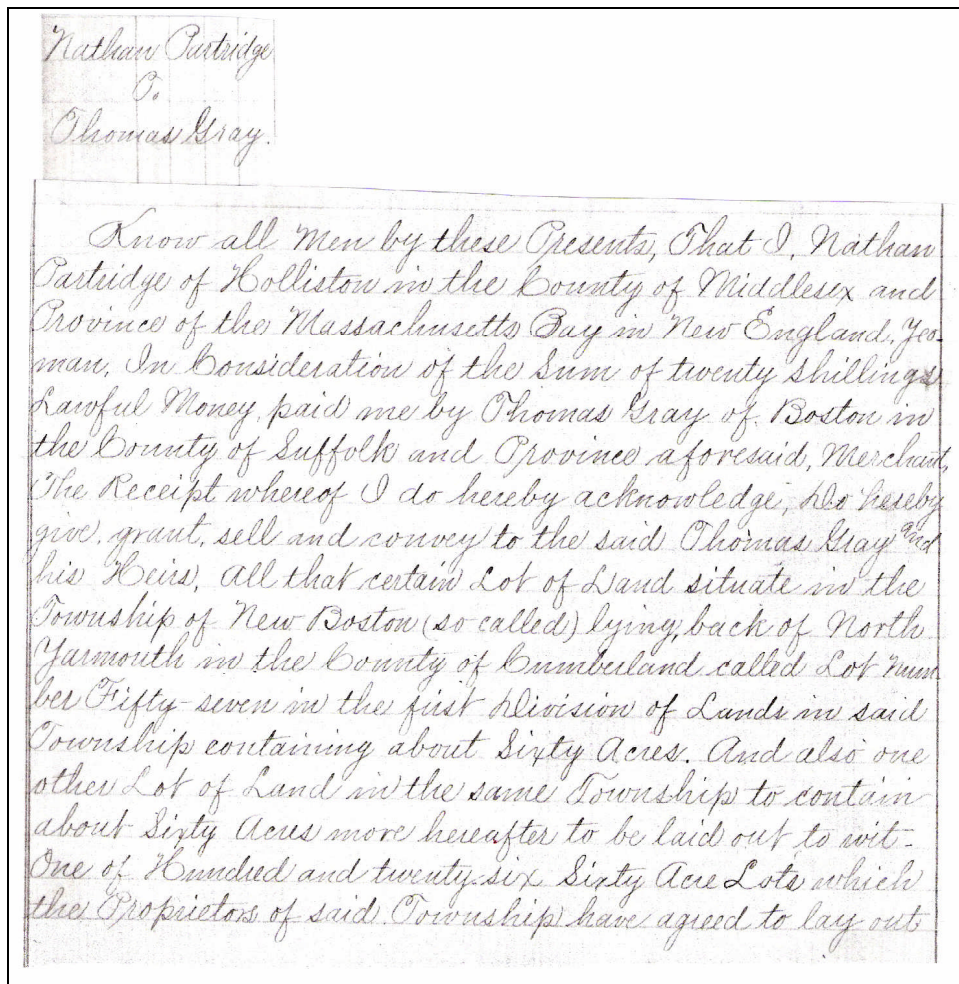 Nathan Partridge
O.
Thomas Gray.
Know all Men by these Presents, That I, Nathan
Partridge of Holliston in the County of Middlesex and
Province of the Massachusetts Bay in New England, Yeo-
man, In Consideration of the Sum of twenty shillings
Lawful Money, paid me by Thomas Gray of Boston in
the County of Suffolk and Province aforesaid, Merchant,
The Receipt whereof I do hereby acknowledge, Do hereby
give, grant, sell and convey to the said Thomas Gray and
his Heirs, All that certain Lot of Land situate in the
Township of New Boston (so called) lying, back of North
Yarmouth in the County of Cumberland called Lot Num
ber Fifty-seven in the first Division of Lands in said
Township containing about Sixty Acres. And also one
other Lot of Land in the same Township to contain
about Sixty Acres more hereafter to be laid out to wit-
One of Hundred and twenty-six Sixty Acre Lots which
the Proprietors of said Township have agreed to lay out